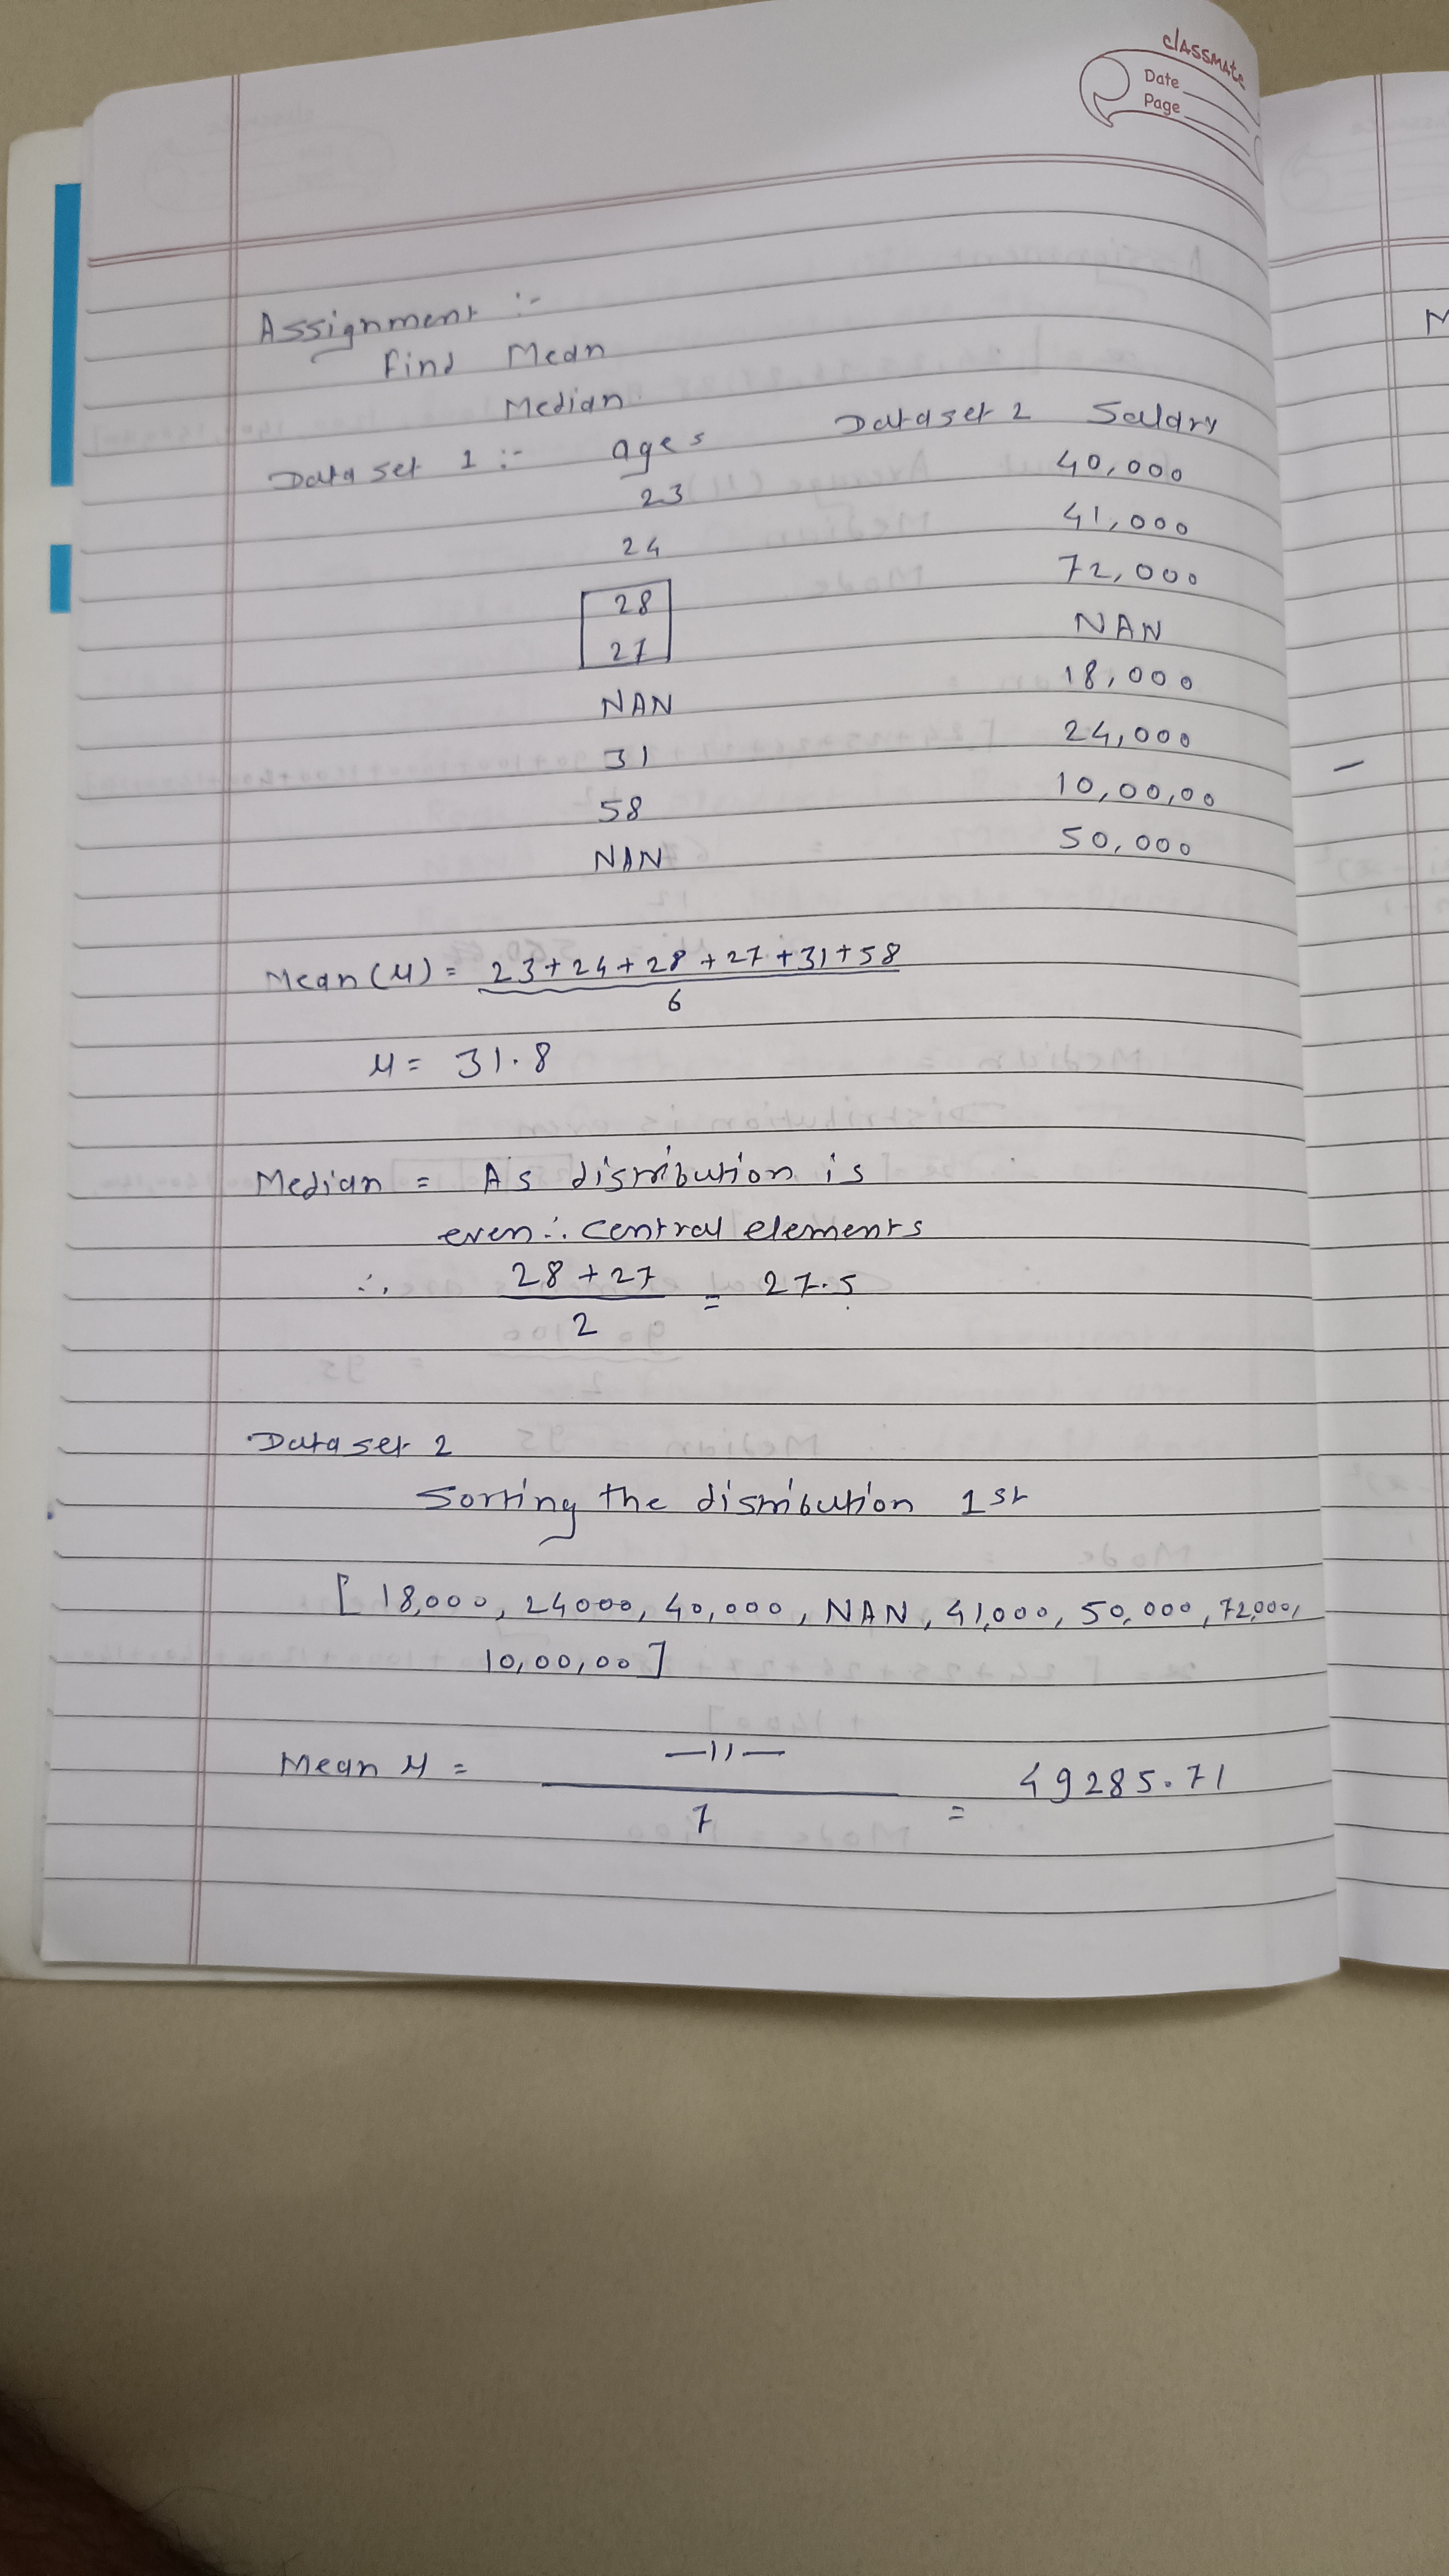 classmate
Date
Page
Assignment :-
find Mean
Median
Data set 1 :- ages
23
24
28
27
NAN
31
58
NAN
Dataset 2 Salary
40,000
41,000
72,000
NAN
18,000
24,000
10,00,00
50,000
Mean (μ) = 23+24+28+27+31+58
6
μ = 31.8
Median = As distribution is
even ∴ central elements
∴ 28+27 = 27.5
2
Data set 2
Sorting the distribution 1st
[18,000, 24000, 40,000, NAN, 41,000, 50,000, 72,000,
10,00,00]
Mean μ = —11— = 49285.71
7